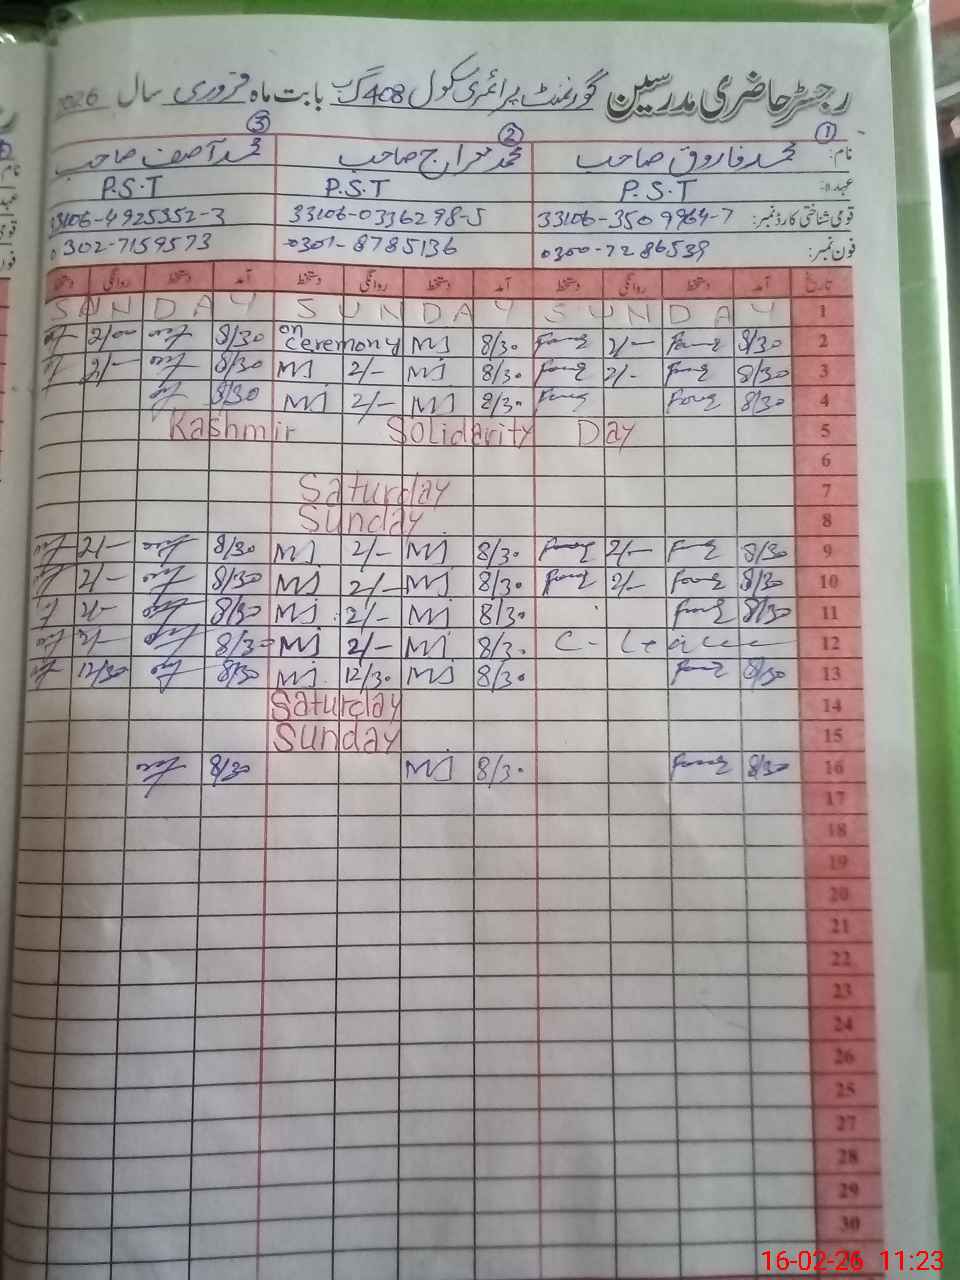 رجسٹر حاضری مدرسین گورنمنٹ پرائمری سکول 408 گ ب بابت ماہ فروری سال 2026
① ② ③
نام: محمد فاروق صاحب محمد معراج صاحب محمد آصف صاحب
عہدہ: P.S.T P.S.T P.S.T
قومی شناختی کارڈ نمبر: 33106-3509964-7 33106-0336298-5 33106-4925352-3
فون نمبر: 0300-7286539 0301-8785136 0302-7159573
تاریخ آمد دستخط روانگی دستخط آمد دستخط روانگی دستخط آمد دستخط روانگی دستخط
SUNDAY SUNDAY SUNDAY 1
2/00 8/30 on ceremony MJ 8/30 Farooq 2/- Farooq 8/30 2
2/- 8/30 MJ 2/- MJ 8/30 Farooq 2/- Farooq 8/30 3
8/30 MJ 2/- MJ 8/30 Farooq Farooq 8/30 4
Kashmir Solidarity Day 5
6
Saturday 7
Sunday 8
2/- 8/30 MJ 2/- MJ 8/30 Farooq 2/- Farooq 8/30 9
2/- 8/30 MJ 2/- MJ 8/30 Farooq 2/- Farooq 8/30 10
2/- 8/30 MJ 2/- MJ 8/30 Farooq 8/30 11
2/- 8/30 MJ 2/- MJ 8/30 C-Leave 12
12/30 8/30 MJ 12/30 MJ 8/30 Farooq 8/30 13
Saturday 14
Sunday 15
8/30 MJ 8/30 Farooq 8/30 16
17
18
19
20
21
22
23
24
26
25
27
28
29
30
16-02-26 11:23